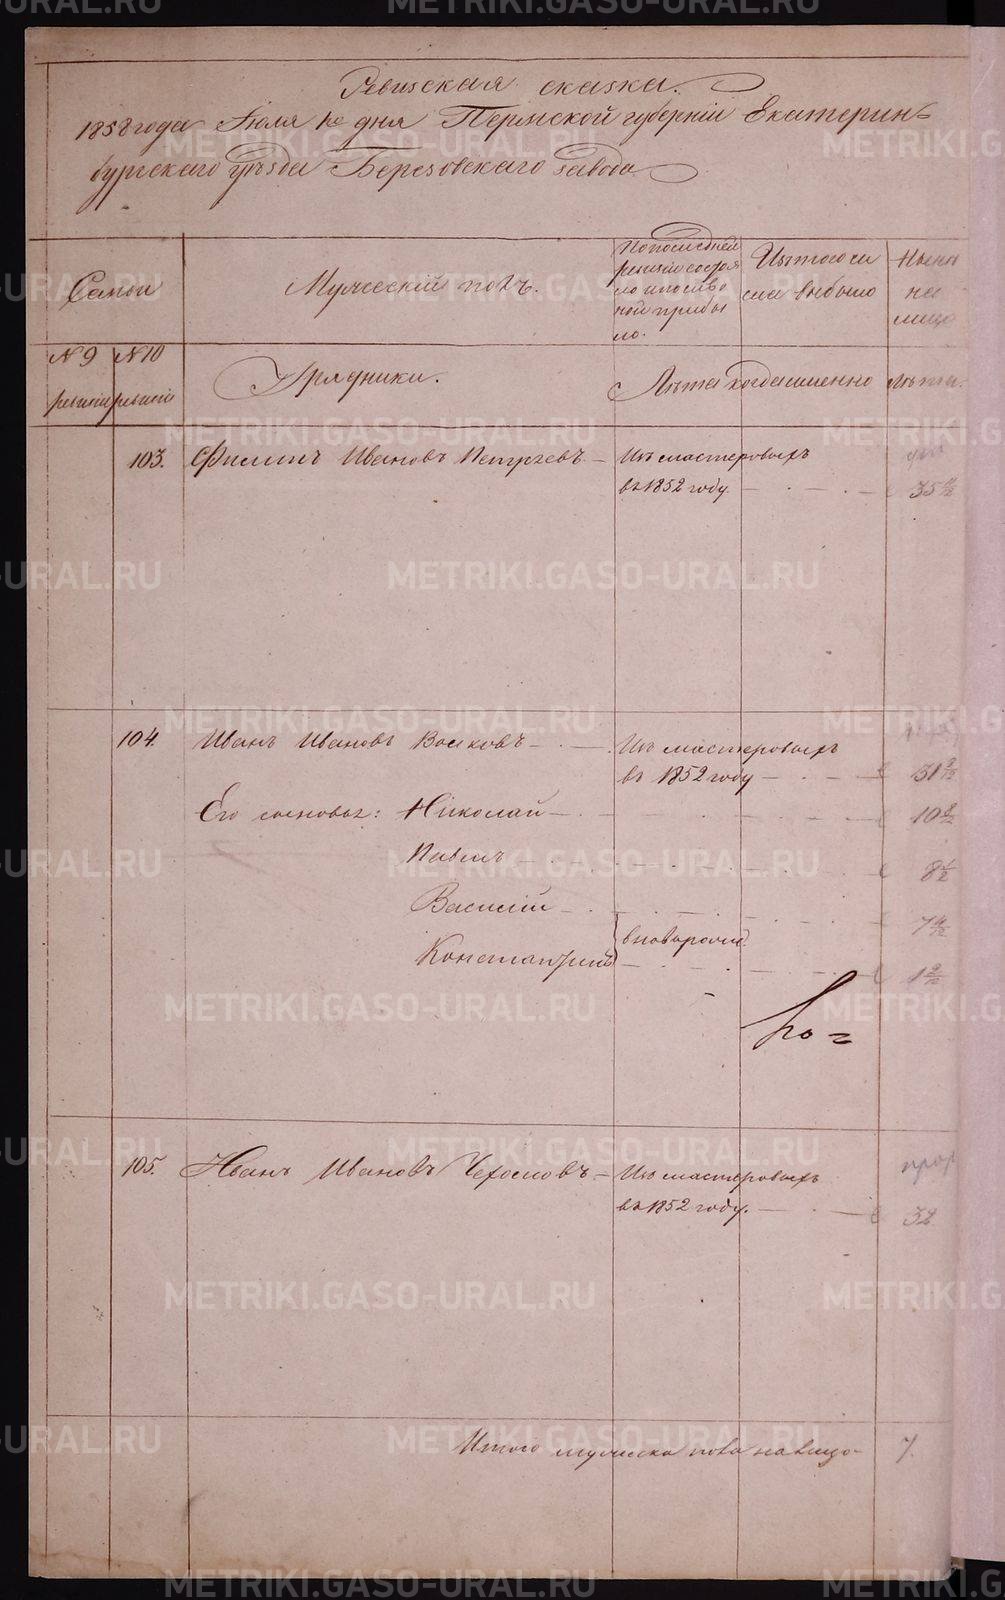 Ревизская сказка.
1858 года Июля 10 дня Пермской губерніи Екатерин=
бургскаго уѣзда Березовскаго завода
Семьи
Мужескій полъ.
По последней
ревизіи состоя
ло и после
той прибы
ло.
Изъ того чи
сла выбыло
Нынѣ
на
лицо
№ 9
ревизіи
№ 10
ревизіи
Урядники.
Лѣта
когда именно
лѣта.
103.
Филипъ Ивановъ
Изъ мастеровыхъ
въ 1852 году
35
104.
Иванъ Ивановъ Волковъ
Изъ мастеровыхъ
въ 1852 году
31
Его сыновья: Николай
10
Павелъ
8 1/2
Василій
7
Константинъ
вноворожд.
1
105.
Иванъ Ивановъ
Изъ мастеровыхъ
въ 1852 году.
32
Итого мужеска пола на лицо
7.
METRIKI.GASO-URAL.RU